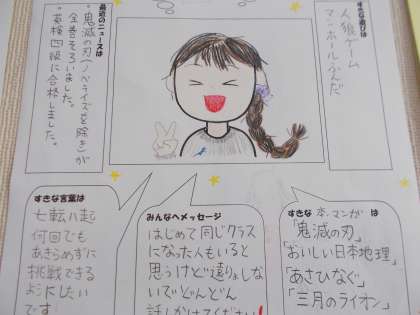 すきな遊びは
人狼ゲーム
マンホールふんだ
最近のニュースは
・鬼滅の刃(ノベライズを除き)が
全巻そろいました。
・英検四級に合格しました。
すきな本、マンガは
「鬼滅の刃」
「おいしい日本地理」
「あさひなぐ」
「三月のライオン」
みんなへメッセージ
はじめて同じクラス
になった人もいると
思うけど遠りょしな
いでどんどん
話しかけてください!
すきな言葉は
七転八起
何回でも
あきらめずに
挑戦できる
ようにしたい
です